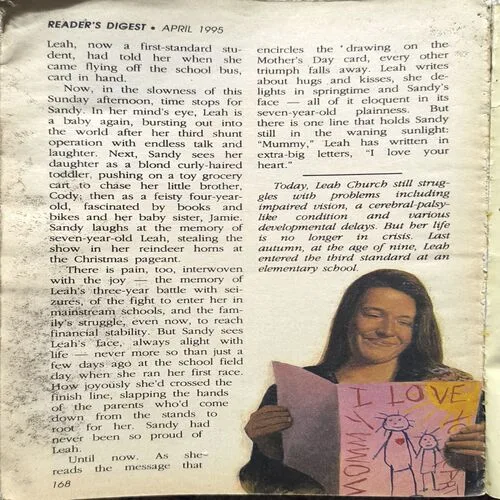 READER'S DIGEST • APRIL 1995
Leah, now a first-standard stu-
dent, had told her when she
came flying off the school bus,
card in hand.
Now, in the slowness of this
Sunday afternoon, time stops for
Sandy. In her mind's eye, Leah is
a baby again, bursting out into
the world after her third shunt
operation with endless talk and
laughter. Next, Sandy sees her
daughter as a blond curly-haired
toddler, pushing on a toy grocery
cart to chase her little brother,
Cody; then as a feisty four-year-
old, fascinated by books and
bikes and her baby sister, Jamie.
Sandy laughs at the memory of
seven-year-old Leah, stealing the
show in her reindeer horns at
the Christmas pageant.
There is pain, too, interwoven
with the joy — the memory of
Leah's three-year battle with sei-
zures, of the fight to enter her in
mainstream schools, and the fam-
ily's struggle, even now, to reach
financial stability. But Sandy sees
Leah's face, always alight with
life — never more so than just a
few days ago at the school field
day, when she ran her first race.
How joyously she'd crossed the
finish line, slapping the hands
of the parents who'd come
down from the stands to
root for her. Sandy had
never been so proud of
Leah.
Until now. As she
reads the message that
168
encircles the drawing on the
Mother's Day card, every other
triumph falls away. Leah writes
about hugs and kisses, she de-
lights in springtime and Sandy's
face — all of it eloquent in its
seven-year-old plainness. But
there is one line that holds Sandy
still in the waning sunlight:
"Mummy," Leah has written in
extra-big letters, "I love your
heart."
Today, Leah Church still strug-
gles with problems including
impaired vision, a cerebral-palsy-
like condition and various
developmental delays. But her life
is no longer in crisis. Last
autumn, at the age of nine, Leah
entered the third standard at an
elementary school.
I LOVE
MOMMY